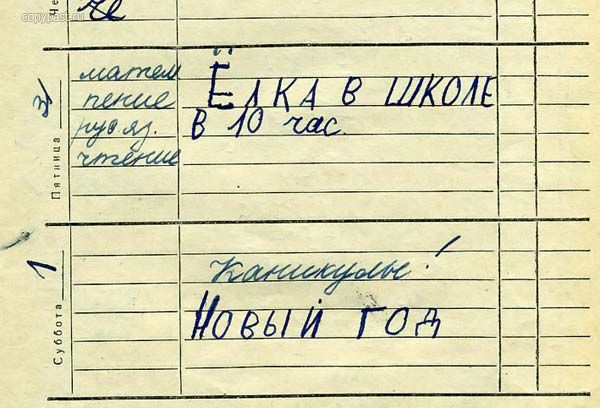 copypast.ru
Че
Че
Пятница 31
матем
пение
рус яз.
чтение
Ёлка в школе
в 10 час
Суббота 1
Каникулы!
Новый год